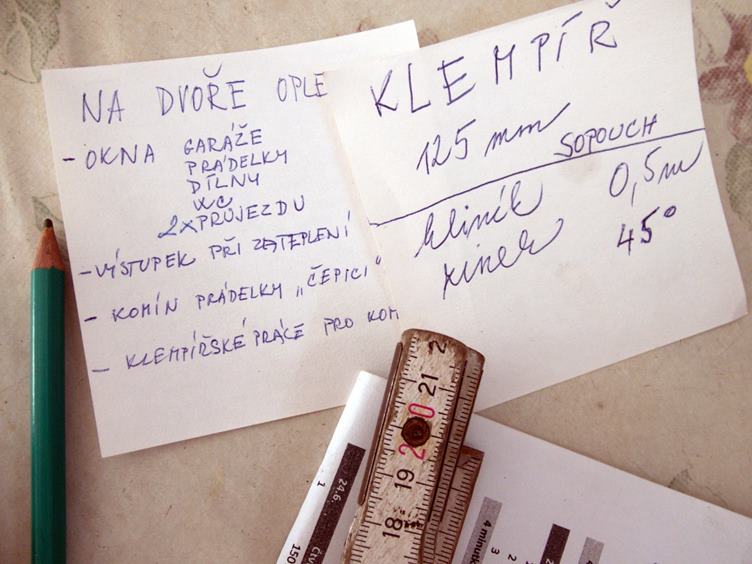 NA DVOŘE OPLE
- OKNA GARÁŽE
PRÁDELKY
DÍLNY
WC
2x PRŮJEZDU
- VÝSTUPEK PŘI ZATEPLENÍ
- KOMÍN PRÁDELKY „ČEPICI“
- KLEMPÍŘSKÉ PRÁCE PRO KOM
KLEMPÍŘ
125 mm
SOPOUCH
hliník 0,5m
45°
2
21
20
19
18
24.6.
1
150
4 minutk
3
2
2